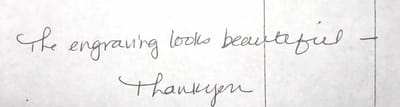 The engraving looks beautiful –
Thankyou